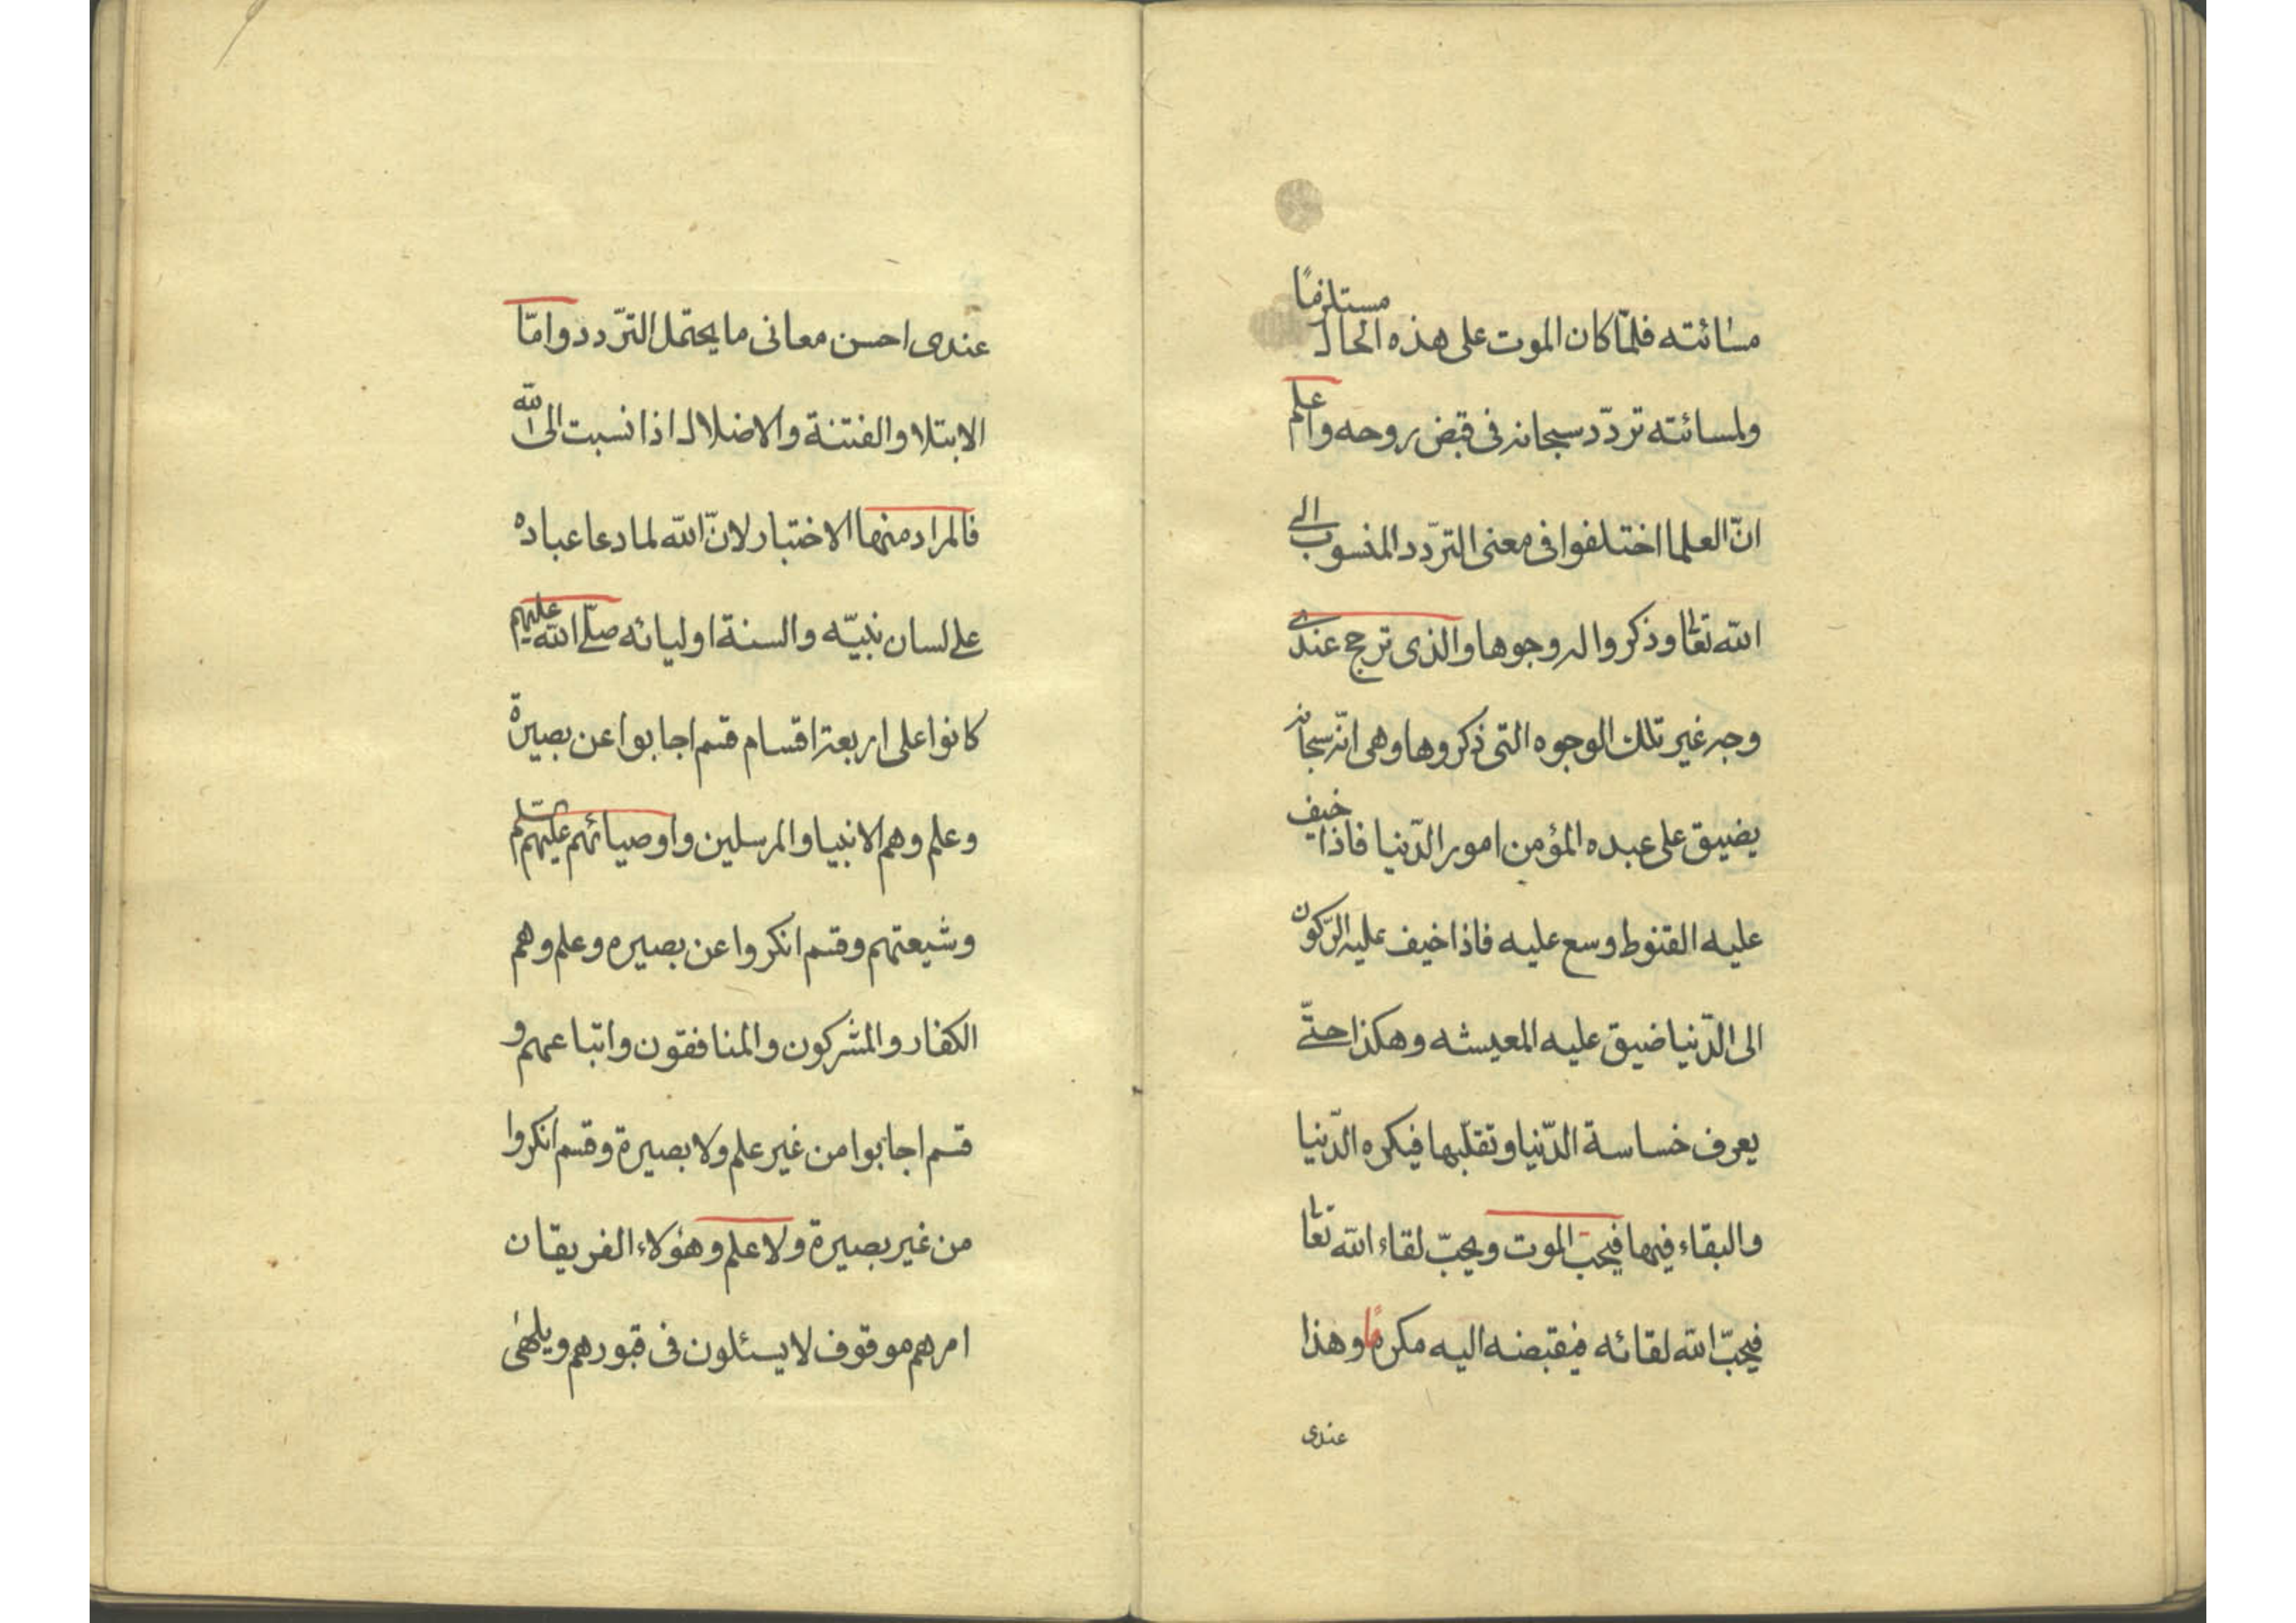 مسائته فلمّا كان الموت على هذه الحال مستلزمًا
ولمسائته تردّد سبحانه فى قبض روحه واعلم
انّ العلما اختلفوا فى معنى التردّد المنسوب الى
الله تعالى وذكروا له وجوها والذى ترجح عندى
وجه غير تلك الوجوه التى ذكروها وهى انّه سبحانه
يضيق على عبده المؤمن امور الدّنيا فاذا خيف
عليه القنوط وسع عليه فاذا خيف عليه الرّكون
الى الدّنيا ضيق عليه المعيشه وهكذا حتّى
يعرف خساسة الدّنيا وتقلّبها فيكره الدّنيا
والبقاء فيها فيحبّ الموت ويحبّ لقاء الله تعالى
فيحبّ الله لقائه فيقبضه اليه مكرمًا وهذا
عندى
عندى احسن معانى ما يحتمل التردّد وامّا
الابتلا والفتنة والاضلال اذا نسبت الى الله
فالمراد منها الاختبار لانّ الله لما دعا عباده
على لسان نبيّه والسنة اوليائه صلّى الله عليهم
كانوا على اربعة اقسام قسم اجابوا عن بصيرة
وعلم وهم الانبيا والمرسلين واوصيائهم عليهم السّلم
وشيعتهم وقسم انكروا عن بصيره وعلم وهم
الكفار والمشركون والمنافقون واتباعهم و
قسم اجابوا من غير علم ولا بصيرة وقسم انكروا
من غير بصيرة ولا علم وهؤلاء الفريقان
امرهم موقوف لا يسئلون فى قبورهم ويلهى